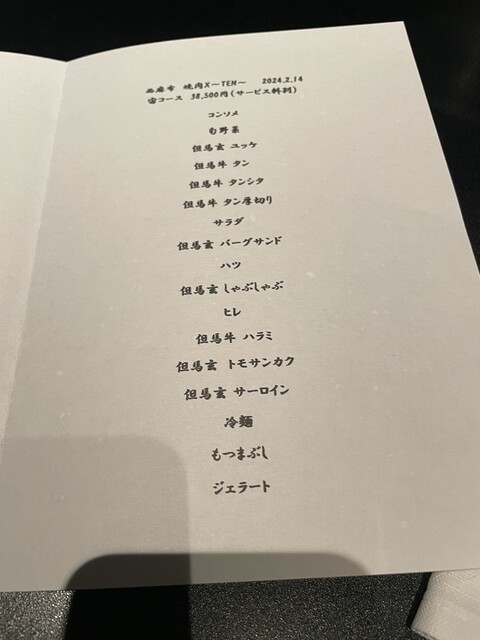 西麻布 焼肉X～TEN～ 2024.2.14
宙コース 38,500円(サービス料別)
コンソメ
旬野菜
但馬玄 ユッケ
但馬牛 タン
但馬牛 タンシタ
但馬牛 タン厚切り
サラダ
但馬玄 バーグサンド
ハツ
但馬玄 しゃぶしゃぶ
ヒレ
但馬牛 ハラミ
但馬玄 トモサンカク
但馬玄 サーロイン
冷麺
もつまぶし
ジェラート